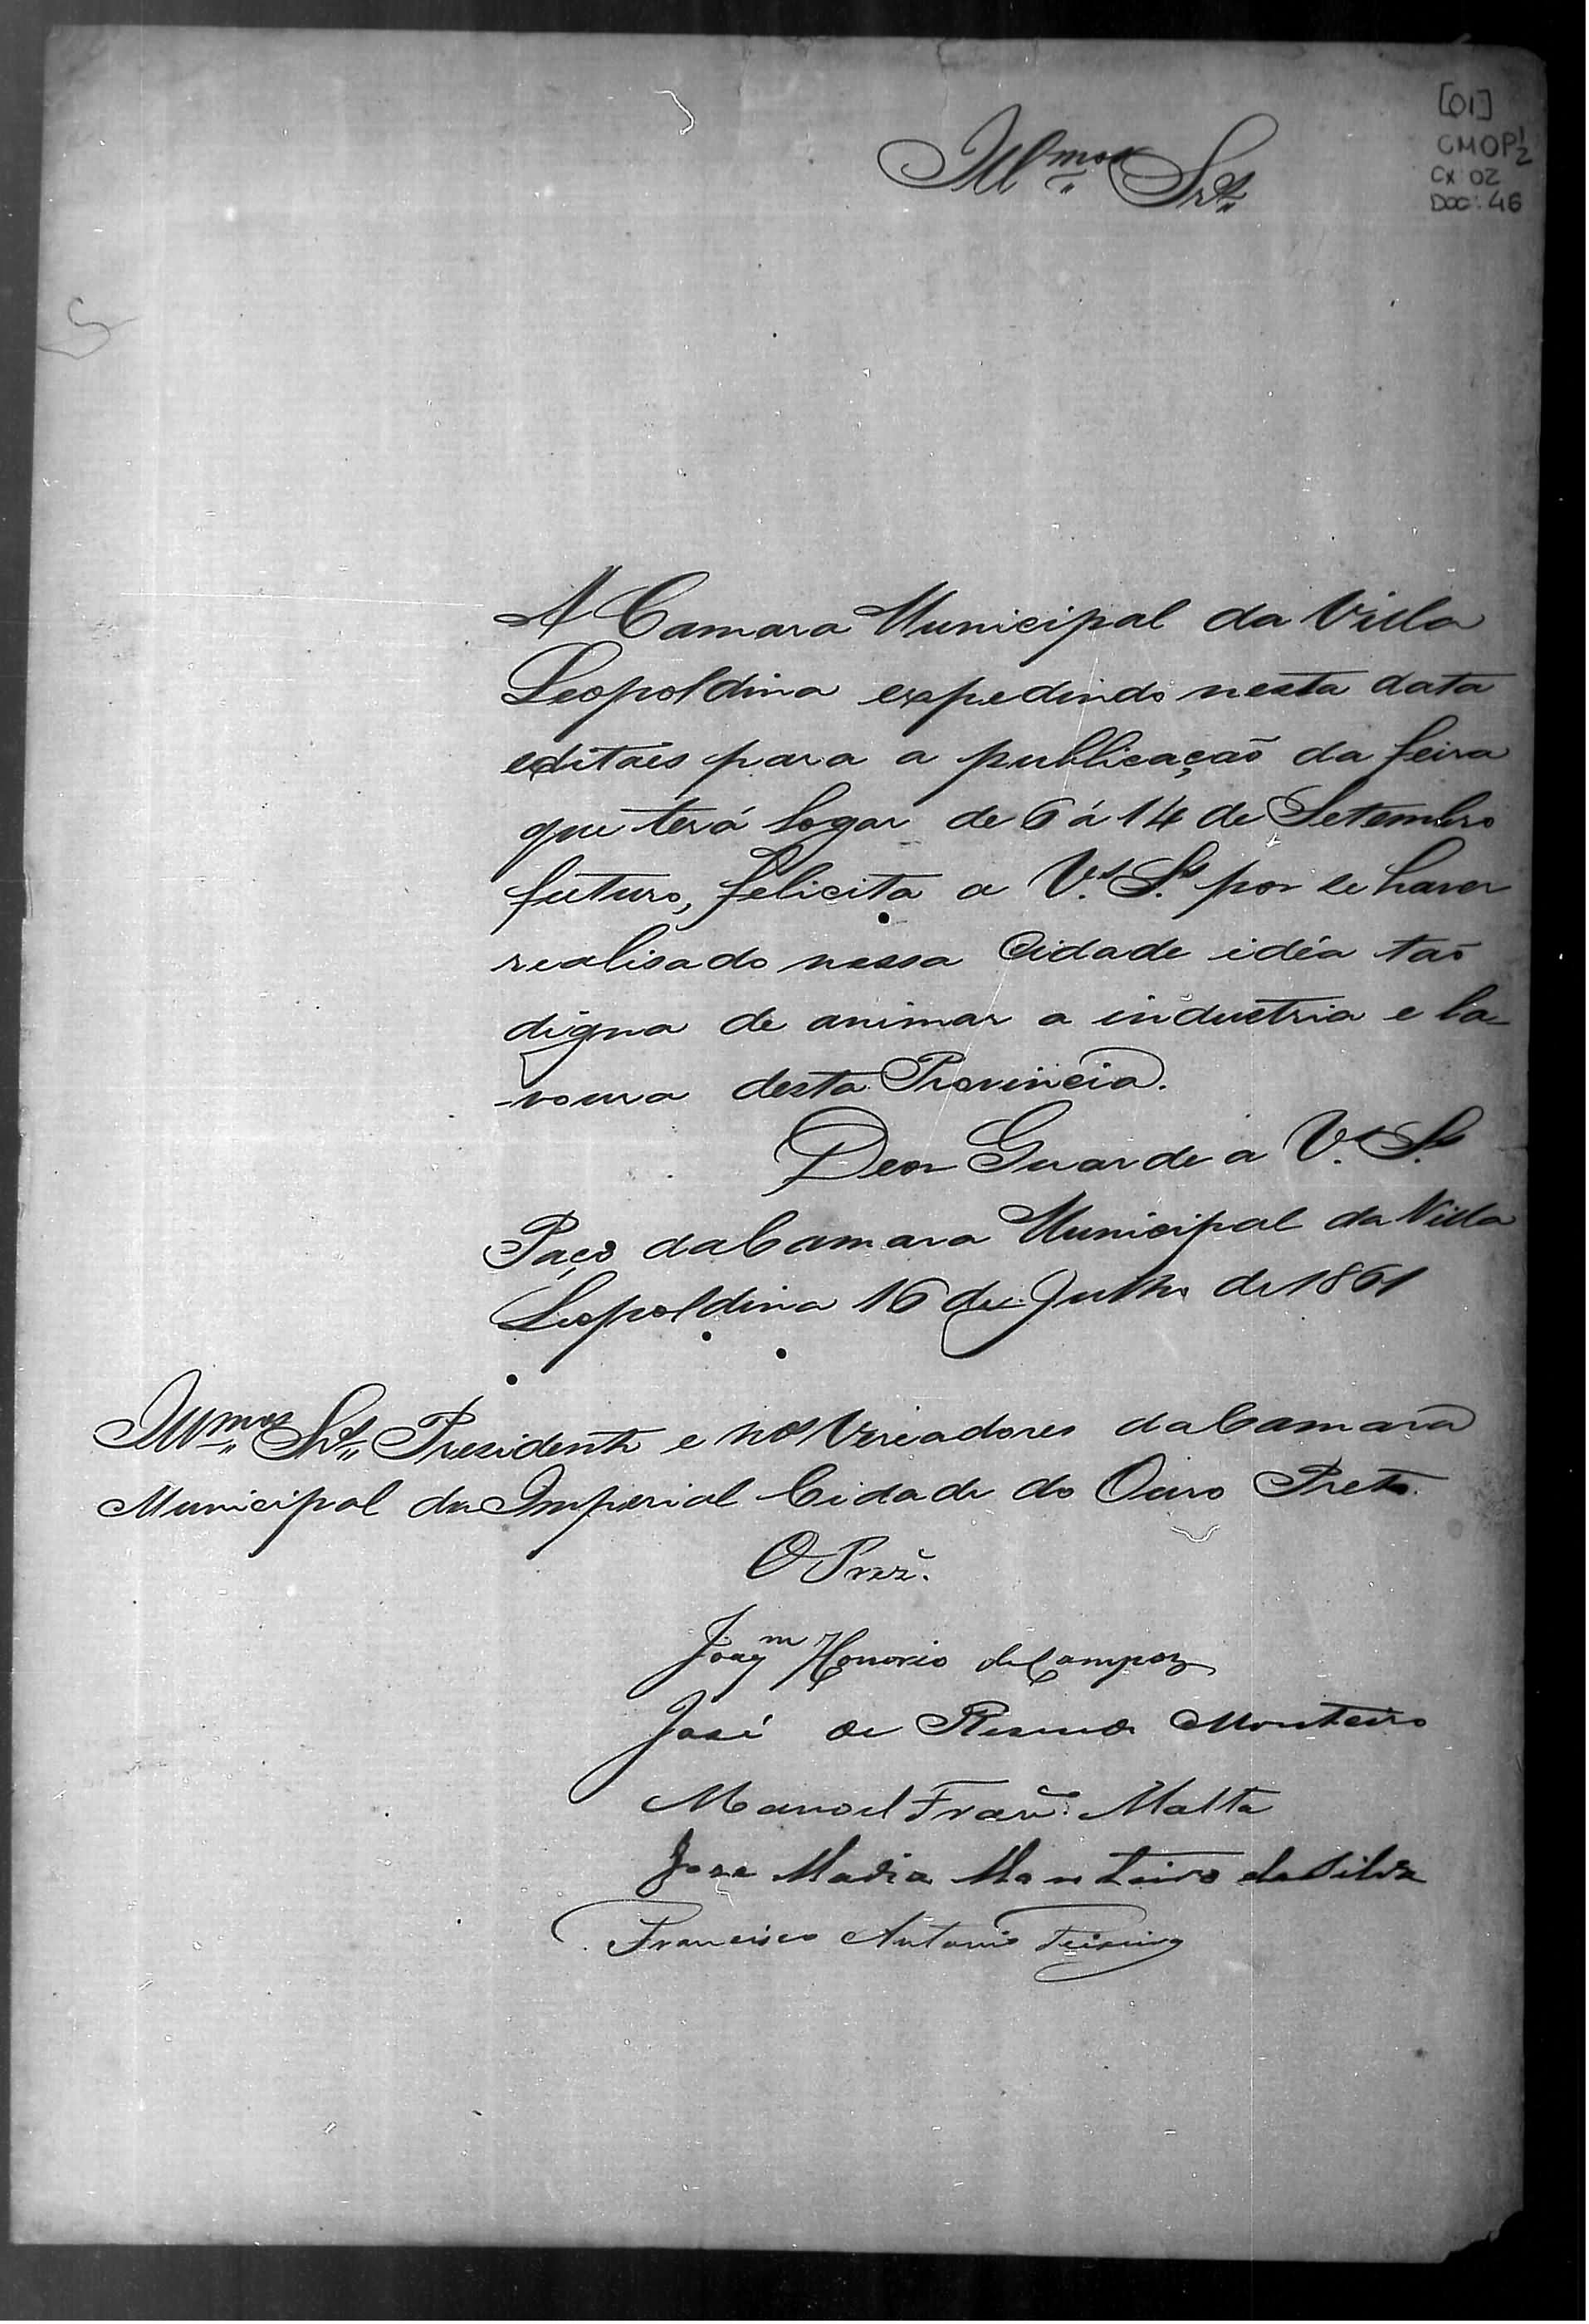 [01]
CMOP 1/2
CX 02
DOC: 46
Illmos Srs
A Camara Municipal da Villa
Leopoldina expedindo nesta data
editaes para a publicação da feira
que terá logar de 6 á 14 de Setembro
futuro, felicita a V.s S.s por se haver
realisado nessa Cidade idéa tão
digna de animar a industria e la-
-voura desta Provincia.
Deos Guarde a V.s S.s
Paço da Camara Municipal da Villa
Leopoldina 16 de Julho de 1861
Illmos Srs Presidente e Vereadores da Camara
Municipal da Imperial Cidade do Ouro Preto.
O Prez.
Joaqm Honorio de Campos
José de Monteiro
Manoel Franco. Malta
Jose Maria Monteiro da Silva
Francisco Antonio Teixeira